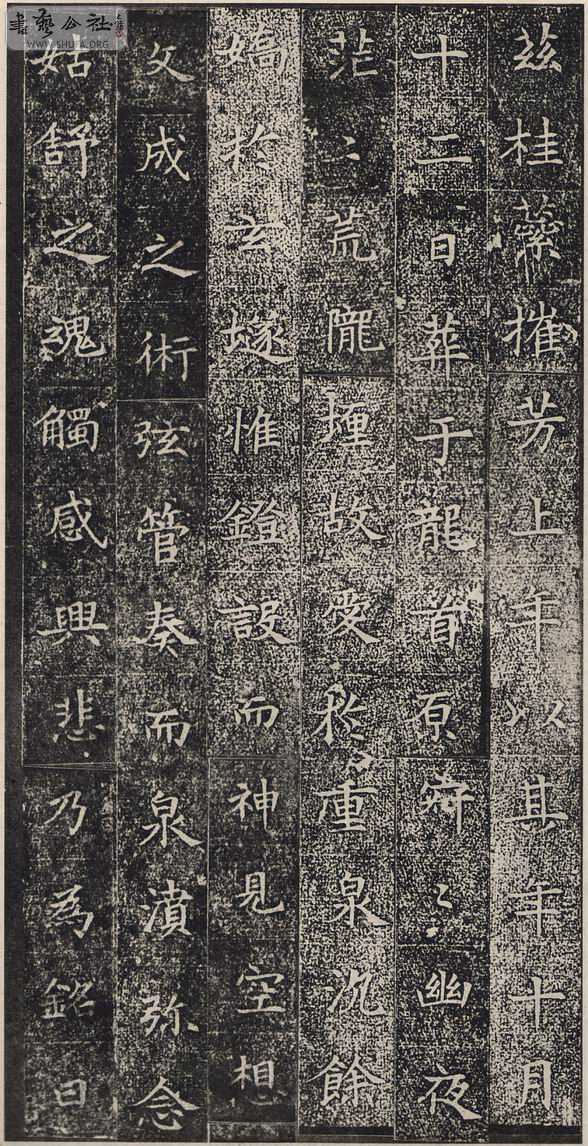 茲桂蘂摧芳上年以其年十月
十二日葬于龍首原𡨋〻幽夜
茫〻荒隴埋故愛於重泉沉餘
嬌於玄墜惟鐙設而神見空想
文成之術弦管奏而泉濆弥念
姑舒之魂觸感興悲乃為銘曰
書藝公社
www.SHUFA.ORG